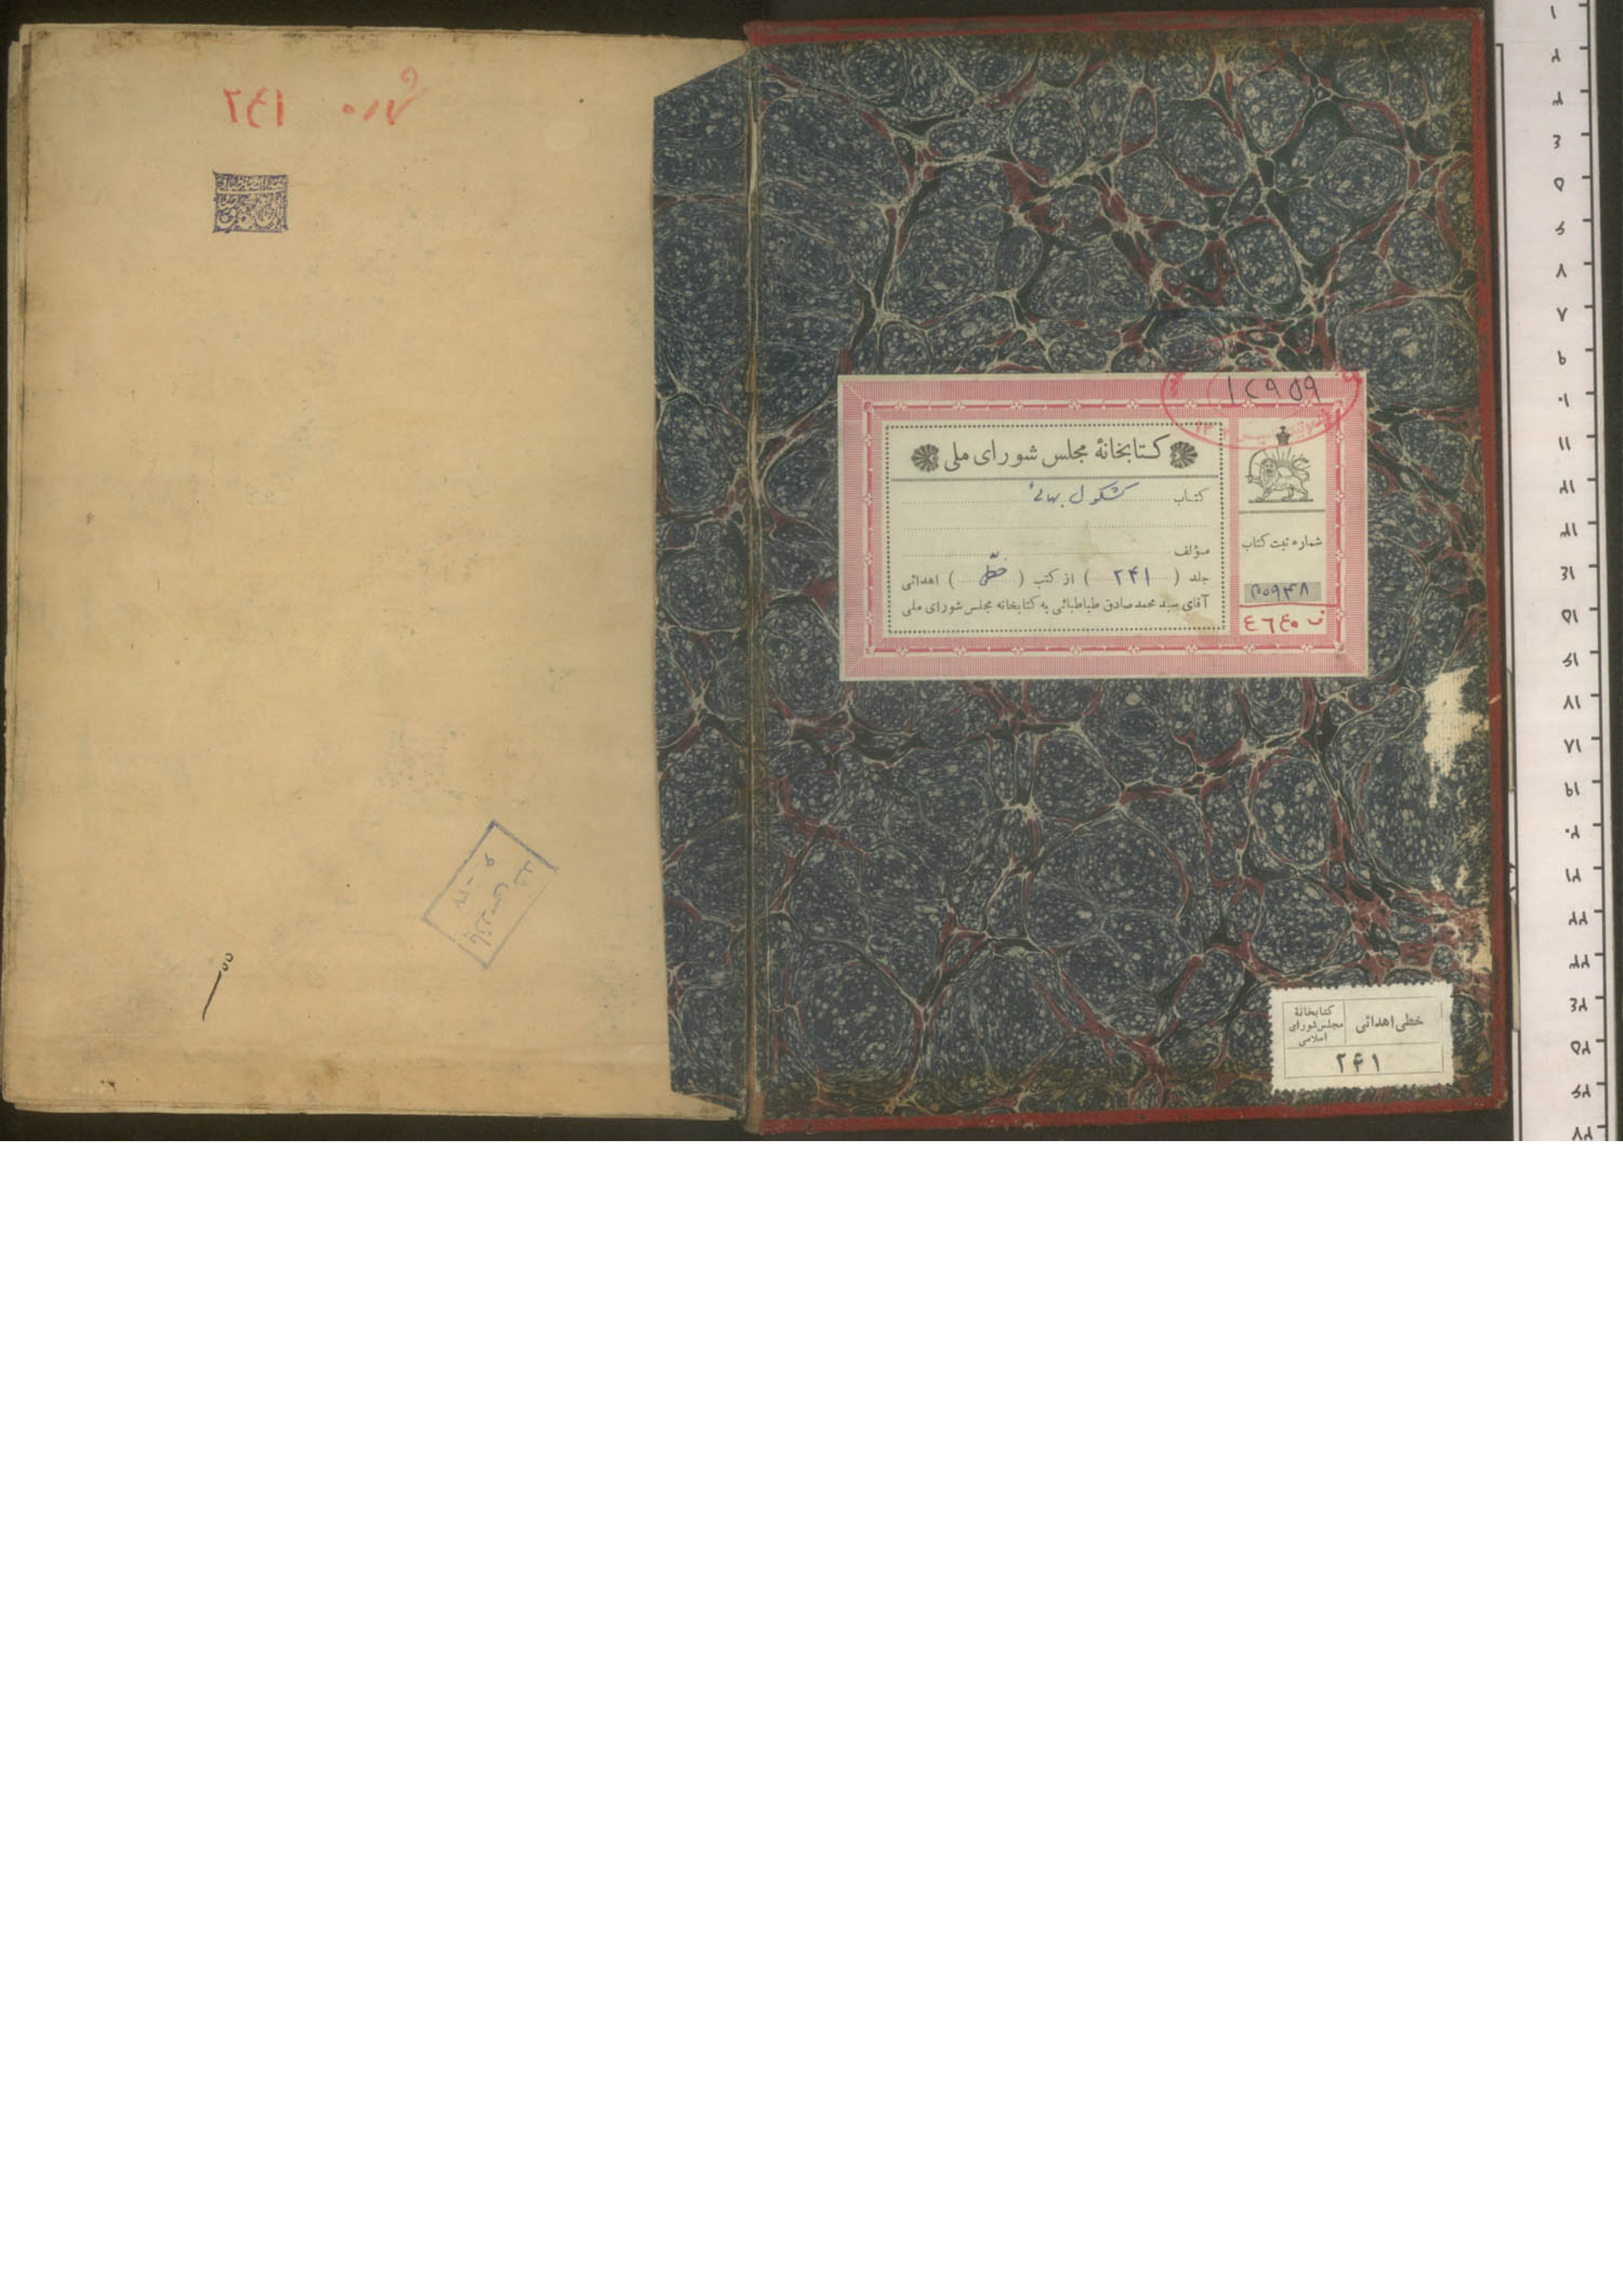 ۱۲۹۵۹
کتابخانهٔ مجلس شورای ملی
کتاب کشکول بهائی
مؤلف
جلد ( ۲۴۱ ) از کتب ( خطی ) اهدائی
آقای سید محمد صادق طباطبائی به کتابخانه مجلس شورای ملی
شماره ثبت کتاب
۲۰۹۴۸
ف ٤٦٤٠
خطی اهدائی
کتابخانهٔ
مجلس شورای
اسلامی
۲۴۱
٢٤١
بازرسی شد